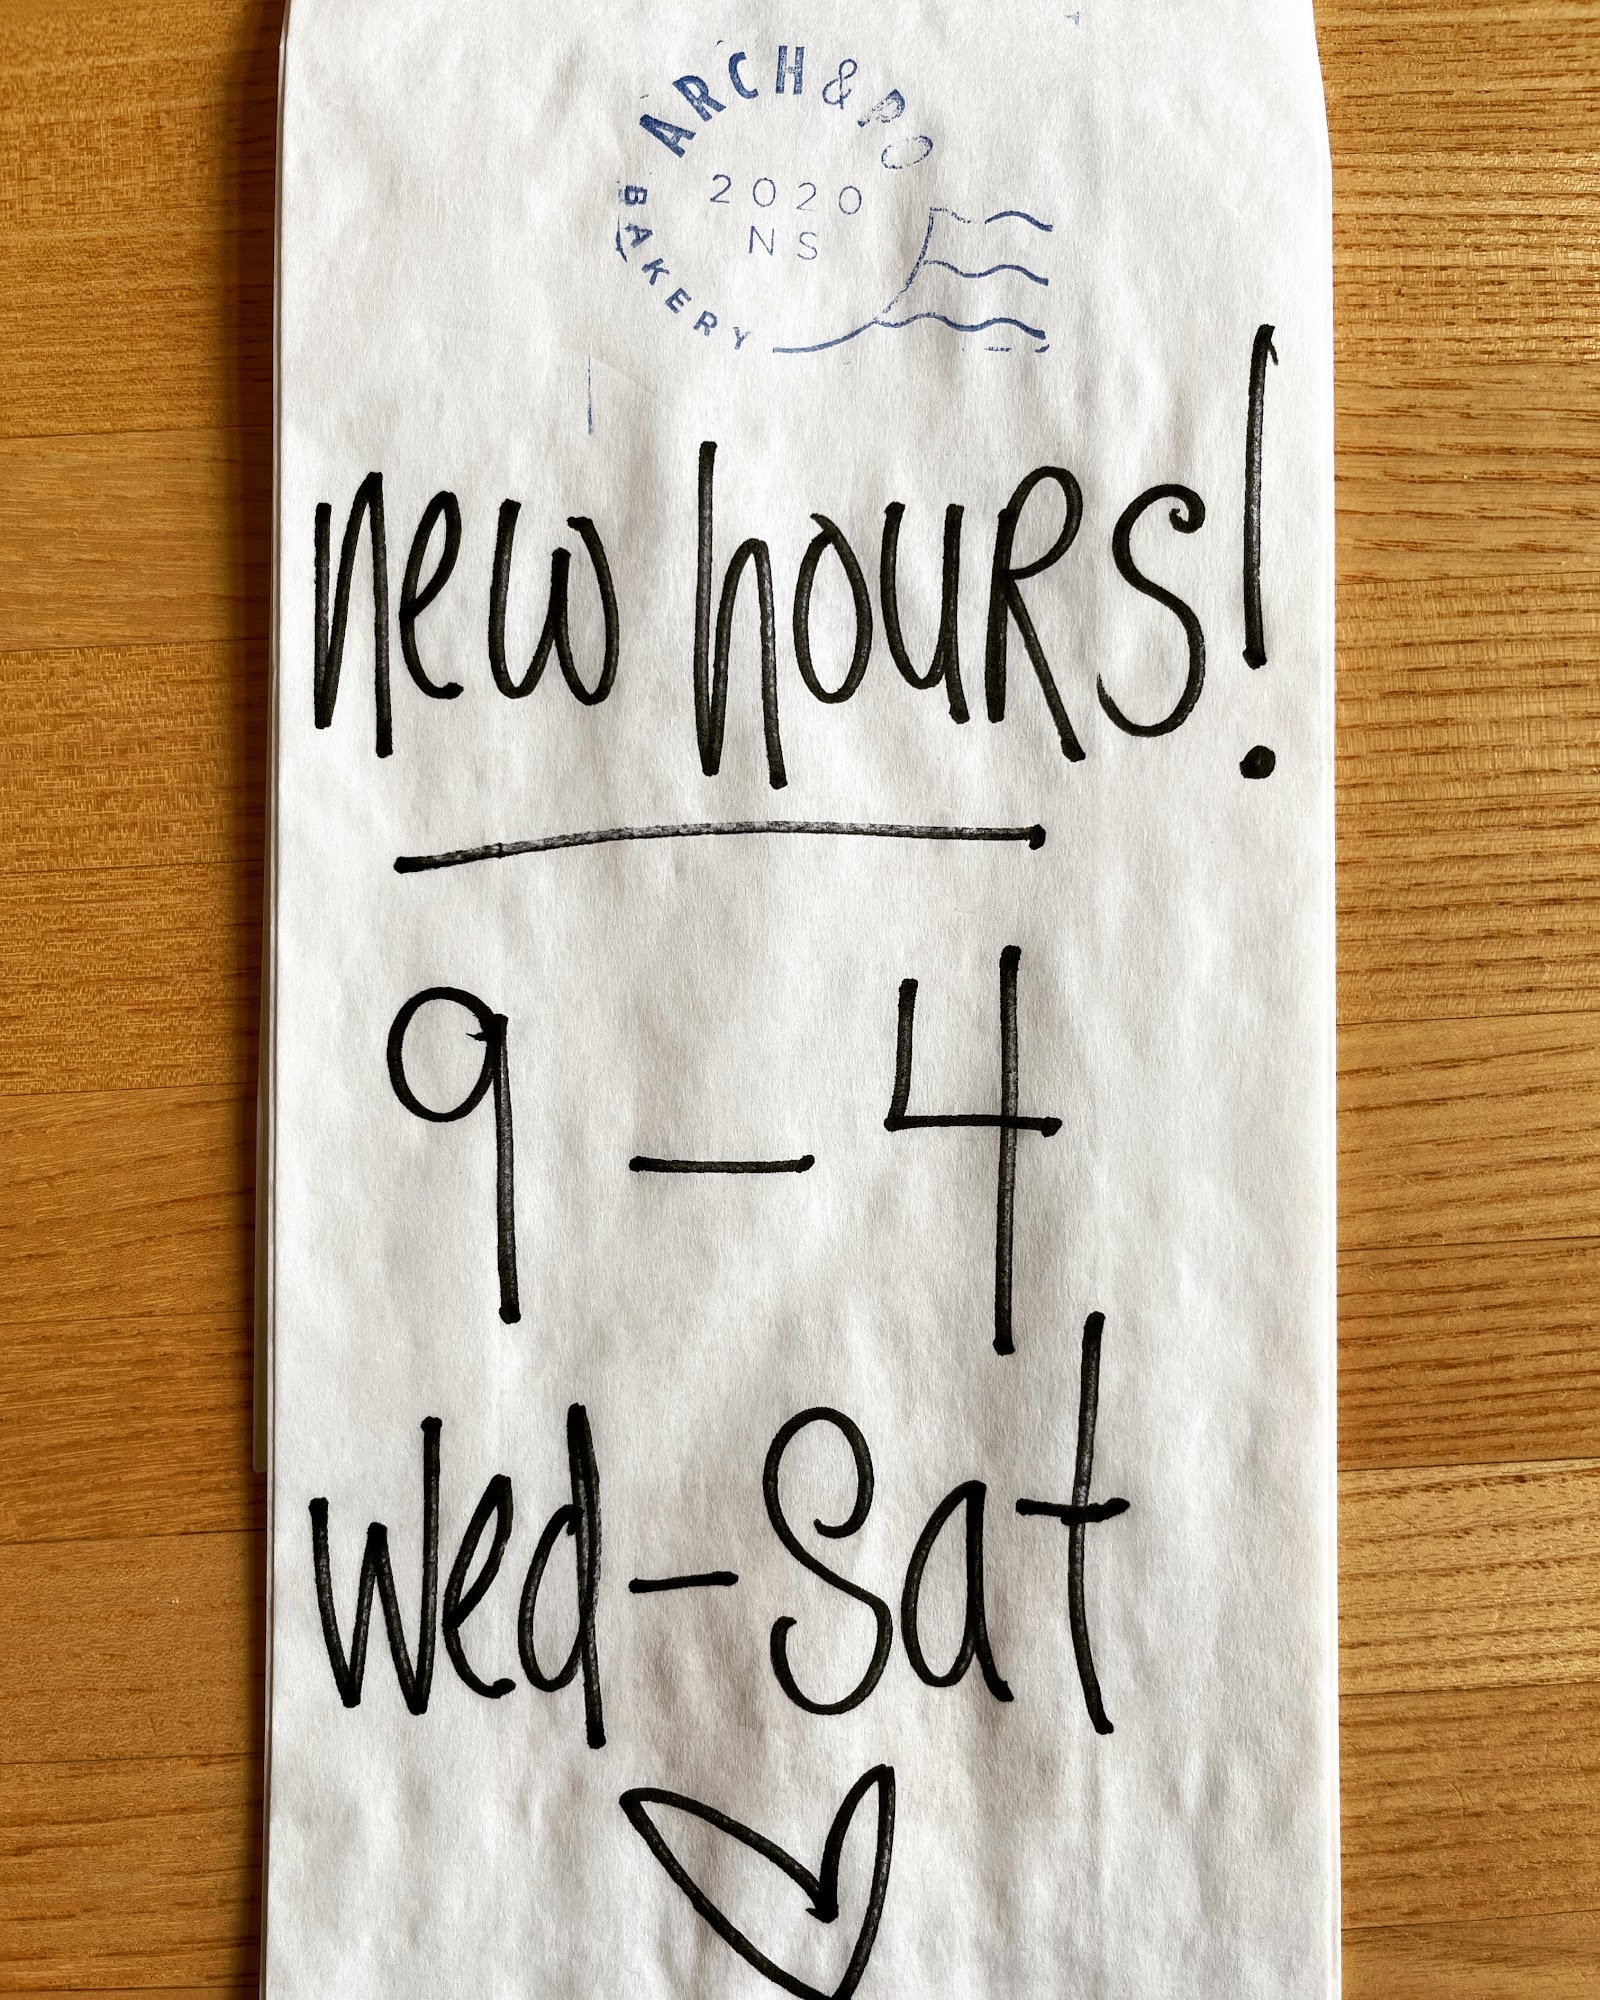 ARCH & PO
2020
NS
BAKERY
new hours!
9 - 4
wed - Sat